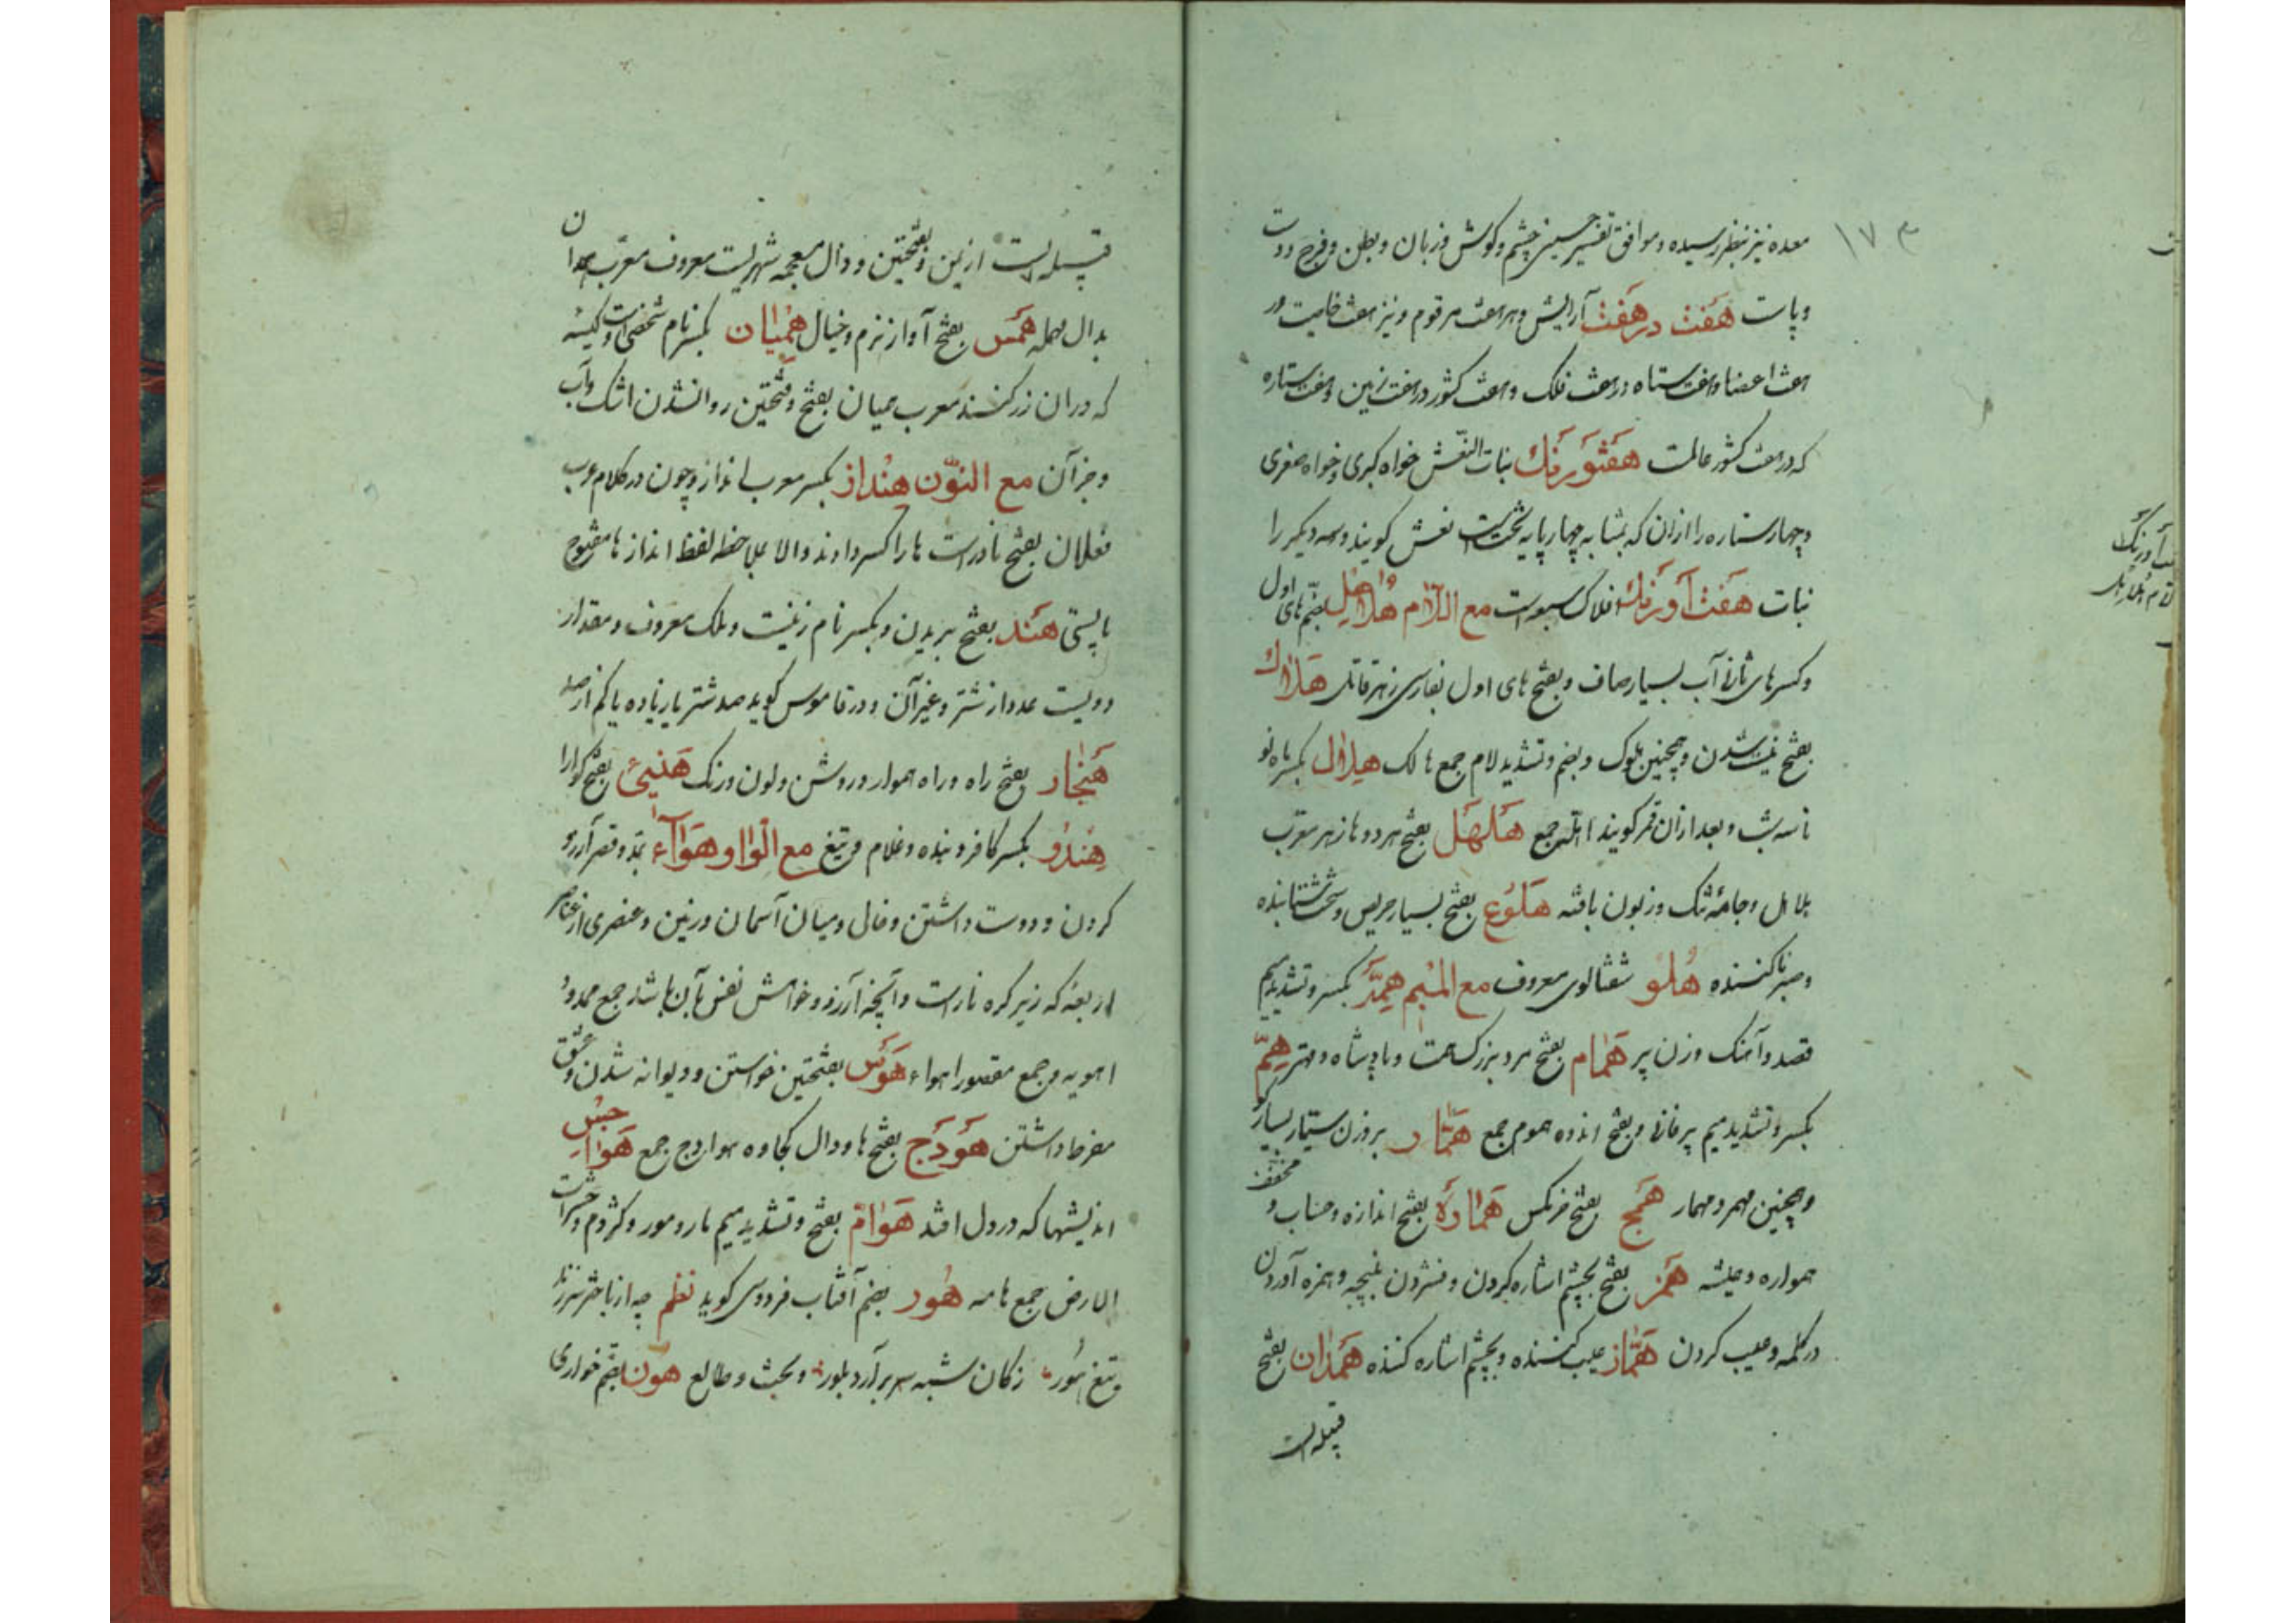 ١٧٣
معده نیز بنظر رسیده و موافق تفسیر حسینی چشم و کوش و زبان و بطن و فرج و دست
و پاست هَفت در هَفت آرایش و هر هفت مرقوم و نیز هفت خاصیت در
هفت اعضا و هفت ستاه در هفت فلک و هفت کشور در هفت زمین و هفت ستاره
که در هفت کشور عالمست هَفتَورَنك بنات النّعش خواه کبری و خواه صغری
و چهار ستاره را ازان که بمثابه چهار پایه تختست نعش کویند و سه دیکر را
بنات هَفت آورَنك افلاک سبعه است مع اللّام هُلاهِل بضمّ های اول
و کسر های ثانی آب بسیار صاف و بفتح های اول بفارسی زهر قاتل هَلاك
بفتح نیست شدن و همچنین هلوک و بضم و تشدید لام جمع هالک هِلال بکسر ماه نو
تا سه شب و بعد ازان قمر کویند اهله جمع هَلهَل بفتح هر دو ها زهر معرب
هلاهل و جامهٔ تنک و زبون بافته هَلُوع بفتح بسیار حریص و سخت شتابنده
و صبر ناکننده هُلو شفتالوی معروف مع المیم هِمَّة بکسر و تشدید میم
قصد و آهنک و زن پیر هُمَام بفتح مرد بزرک همت و پادشاه و مهتر هِمّ
بکسر و تشدید میم پیر فانی و بفتح اندوه هموم جمع هَمّار بر وزن ستیار بسیار کو
و همچنین مهمر و مهمار هَمَج بفتح خرمکس هَمارَه بفتح اندازه و حساب و مخفف
همواره و همیشه هَمز بفتح بچشم اشاره کردن و فشردن بپنجه و همزه آوردن
در کلمه و عیب کردن هَمّاز عیب کننده و بچشم اشاره کننده هَمدان بفتح
قبیله است
قبیله ایست از یمن و بفتحتین و ذال معجمه شهریست معروف معرب همدان
بدال مهمله هَمس بفتح آواز نرم و خیال هِمیان بکسر نام شخصی است و کیسه
که در ان زر کنند معرب همیان بفتح و فتحتین روان شدن اشک و آب
و جز آن مع النّون هِنداز بکسر معرب انداز و چون در کلام عرب
فعلال بفتح نادر است ها را کسر دادند و الا بملاحظه لفظ انداز ها مفتوح
بایستی هَند بفتح بریدن و بکسر نام زنیست و ملک معروف و مقدار
دویست عدد از شتر و غیر آن و در قاموس کوید صد شتر یا زیاده یا کم از صد
هَنجار بفتح راه و راه هموار و روش و لون و رنک هَنیئ بفتح کوارا
هِندو بکسر کافر و بنده و غلام و تیغ مع الواو هَوآء بمد و قصر آرزو
کردن و دوست داشتن و خال و میان آسمان و زمین و عنصری از عناصر
اربعه که زیر کره نارست و آنچه آرزو و خواهش نفس بآن باشد جمع ممدود
اهویه و جمع مقصور اهواء هَوَس بفتحتین خواستن و دیوانه شدن و عشق
مفرط داشتن هَودَج بفتح ها و دال کجاوه هوادج جمع هَواجِس
اندیشها که در دل افتد هَوَامّ بفتح و تشدید میم مار و مور و کژدم و حشرات
الارض جمع هامه هُور بضم آفتاب فردوسی کوید نظم چو از باختر بر زند
تیغ هور ٠ ز کان شبه سر برآرد بلور ٠ و بخت و طالع هُون بضم خواری